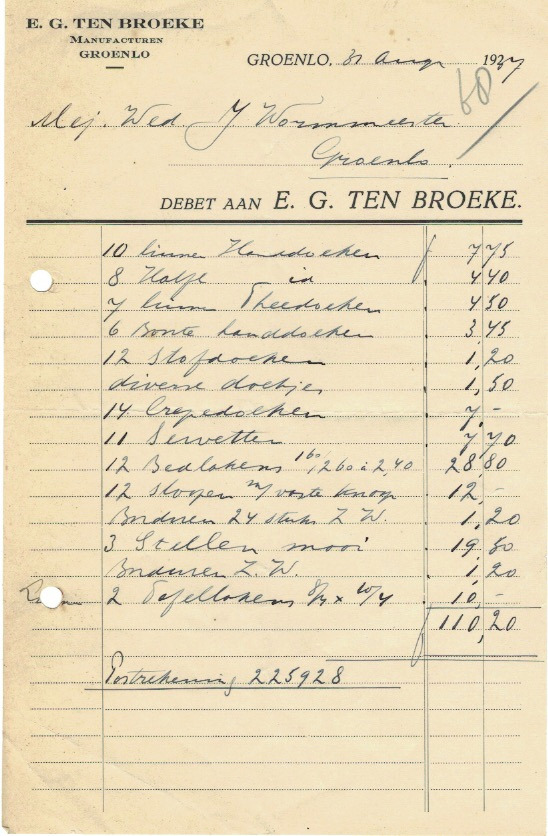 E. G. TEN BROEKE
MANUFACTUREN
GROENLO
GROENLO, 31 Aug 1937
60
Mej. Wed. J Wormmeester
Groenlo.
DEBET AAN E. G. TEN BROEKE.
10 linnen Handdoeken f 7,75
8 Halfl id 4 40
7 linn Theedoeken 4 50
6 Bonte handdoeken 3,45
12 Stofdoeken 1,20
diverse doekjes 1,50
14 Crepedoeken 7,-
11 Servetten 7,70
12 Bedlakens 160/260 à 2,40 28,80
12 Sloopen m/ vaste knoop 12,-
Borduren 24 stuks Z. W. 1,20
3 Stellen mooi 19,50
Borduren Z. W. 1,20
2 Tafellakens 8/4 x 10/4 10,-
f 110,20
Postrekening 225928